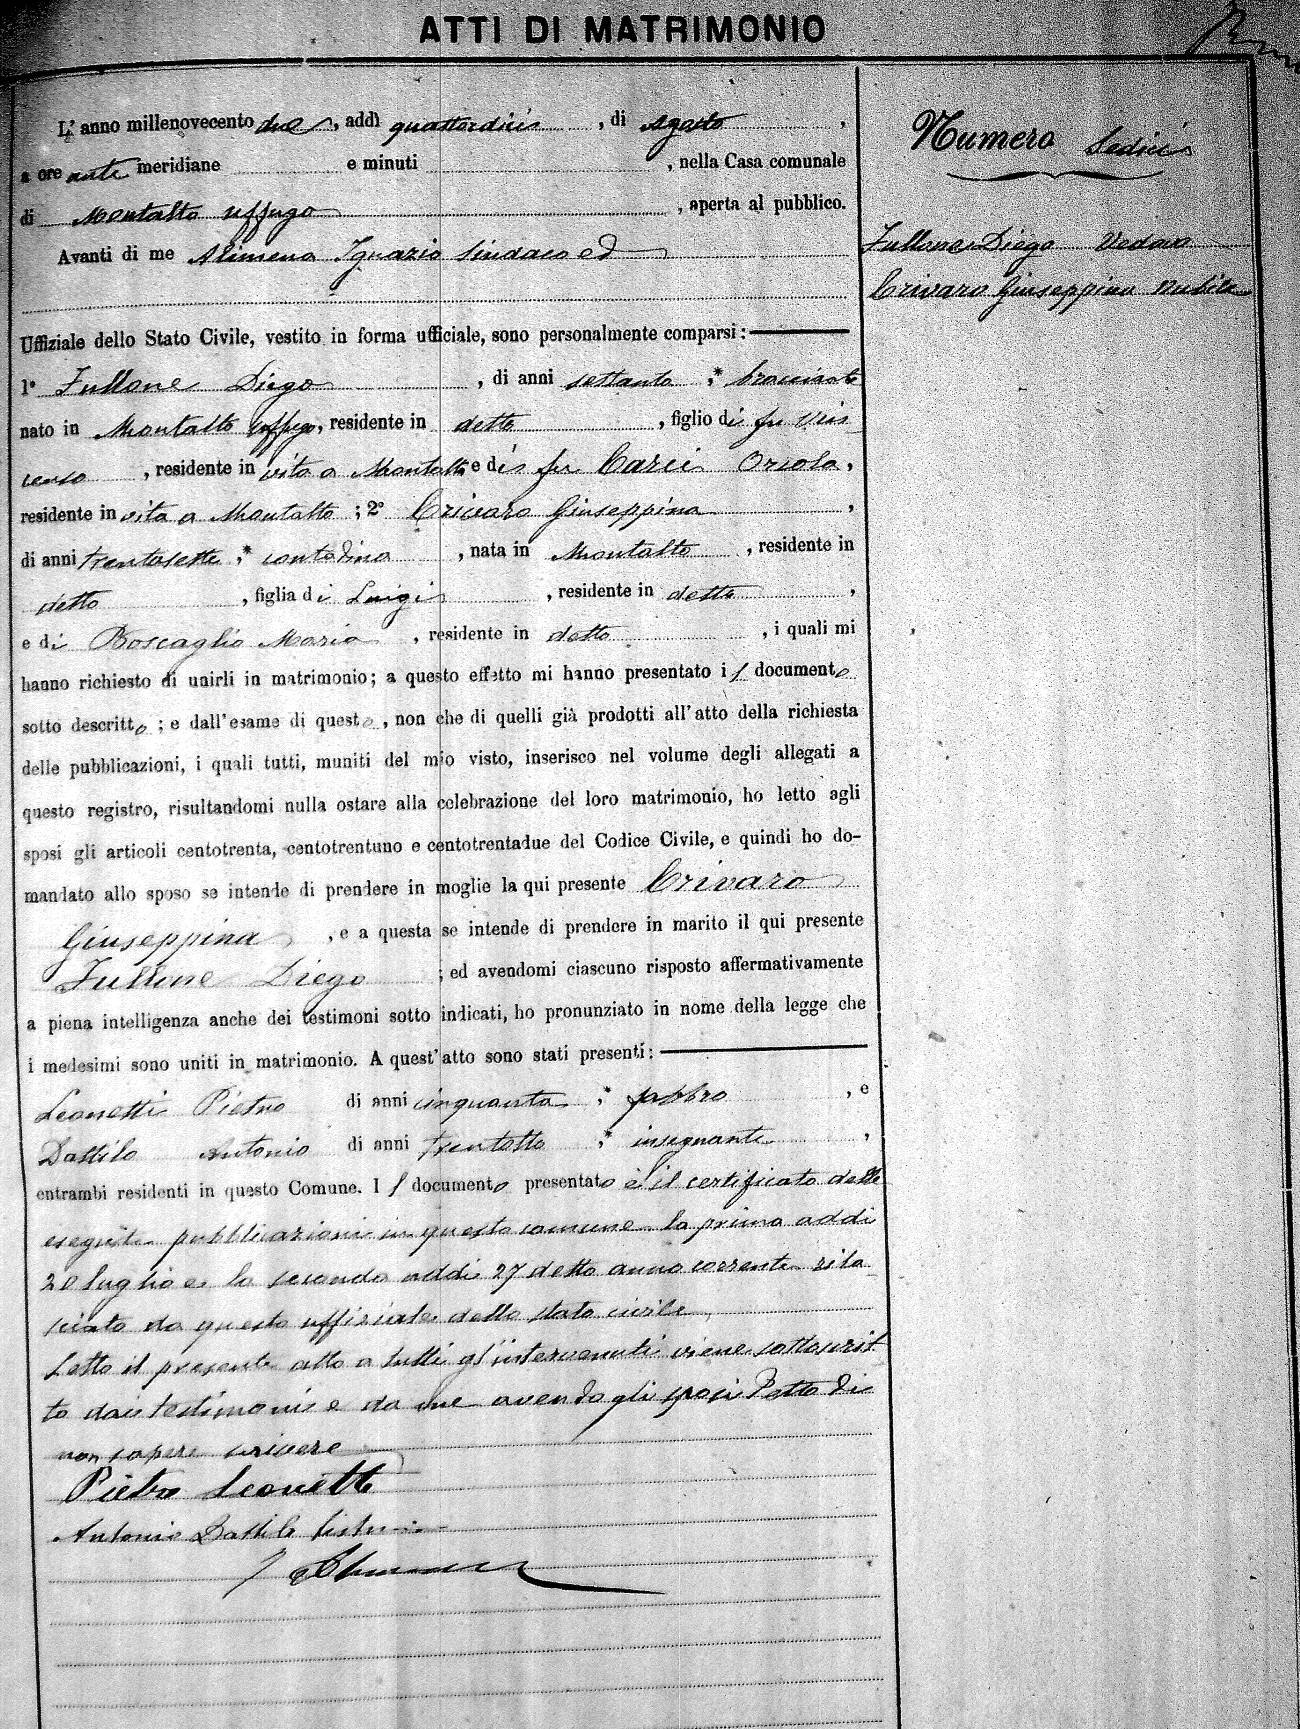 ATTI DI MATRIMONIO
L'anno millenovecento due, addì quattordici, di Agosto,
a ore ante meridiane e minuti, nella Casa comunale
di Montalto Uffugo, aperta al pubblico.
Avanti di me Alimena Ignazio Sindaco ed
Uffiziale dello Stato Civile, vestito in forma ufficiale, sono personalmente comparsi:
1° Fullone Diego, di anni settanta;* bracciante
nato in Montalto Uffugo, residente in detto, figlio di fu Vin
cenzo, residente in vita a Montalto e di fu Carci Orsola,
residente in vita a Montalto; 2° Crivaro Giuseppina,
di anni trentasette;* contadina, nata in Montalto, residente in
detto, figlia di Luigi, residente in detto,
e di Boscaglia Maria, residente in detto, i quali mi
hanno richiesto di unirli in matrimonio; a questo effetto mi hanno presentato il documento
sotto descritto; e dall'esame di questo, non che di quelli già prodotti all'atto della richiesta
delle pubblicazioni, i quali tutti, muniti del mio visto, inserisco nel volume degli allegati a
questo registro, risultandomi nulla ostare alla celebrazione del loro matrimonio, ho letto agli
sposi gli articoli centotrenta, centotrentuno e centotrentadue del Codice Civile, e quindi ho do-
mandato allo sposo se intende di prendere in moglie la qui presente Crivaro
Giuseppina, e a questa se intende di prendere in marito il qui presente
Fullone Diego; ed avendomi ciascuno risposto affermativamente
a piena intelligenza anche dei testimoni sotto indicati, ho pronunziato in nome della legge che
i medesimi sono uniti in matrimonio. A quest'atto sono stati presenti:
Leonetti Pietro di anni cinquanta;* fabbro, e
Dattilo Antonio di anni trentotto;* insegnante,
entrambi residenti in questo Comune. Il documento presentato è il certificato delle
eseguite pubblicazioni in questo comune la prima addi
20 luglio e la seconda addi 27 detto anno corrente rila
sciato da questo uffiziale dello stato civile
Letto il presente atto a tutti gl'intervenuti viene sottoscrit
to dai testimoni e da me avendo gli sposi detto di
non sapere scrivere
Pietro Leonetti
Antonio Dattilo
Numero Sedici
Fullone Diego Vedovo
Crivaro Giuseppina nubile